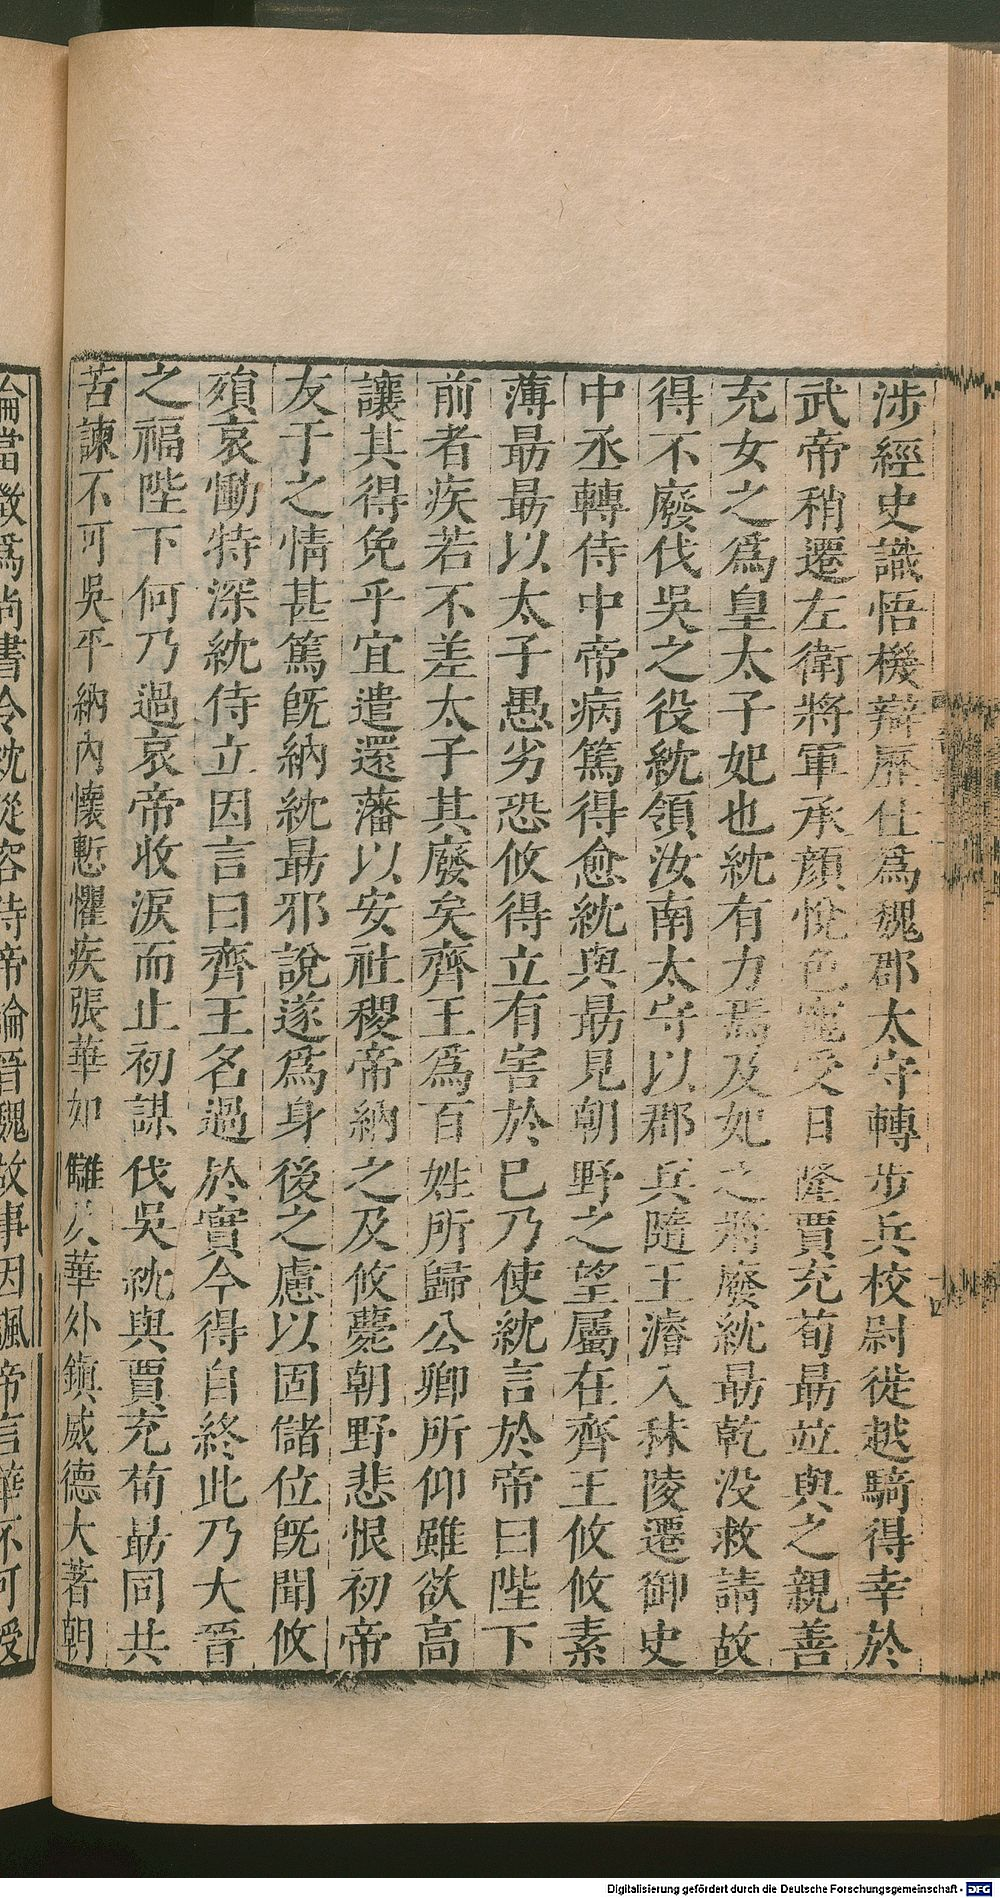 涉經史識悟機辯歷仕爲魏郡太守轉步兵校尉徙越騎得幸於
武帝稍遷左衛將軍承顔悅色寵受日隆賈充荀勗竝與之親善
充女之爲皇太子妃也紞有力焉及妃之將廢紞勗乾没救請故
得不廢伐吳之役紞領汝南太守以郡兵隨王濬入秣陵遷御史
中丞轉侍中帝病篤得愈紞與勗見朝野之望屬在齊王攸攸素
薄勗勗以太子愚劣恐攸得立有害於已乃使紞言於帝曰陛下
前者疾若不差太子其廢矣齊王爲百姓所歸公卿所仰雖欲高
讓其得免乎宜遣還藩以安社稷帝納之及攸薨朝野悲恨初帝
友于之情甚篤旣納紞勗邪說遂爲身後之慮以固儲位旣聞攸
殞哀慟特深紞侍立因言曰齊王名過於實今得自終此乃大晉
之福陛下何乃過哀帝收淚而止初謀伐吳紞與賈充荀勗同共
苦諫不可吳平納內懷慙懼疾張華如讎及華外鎮威德大著朝
論當徵爲尚書令紞從容侍帝論晉魏故事因諷帝言華不可授
Digitalisierung gefördert durch die Deutsche Forschungsgemeinschaft - DFG